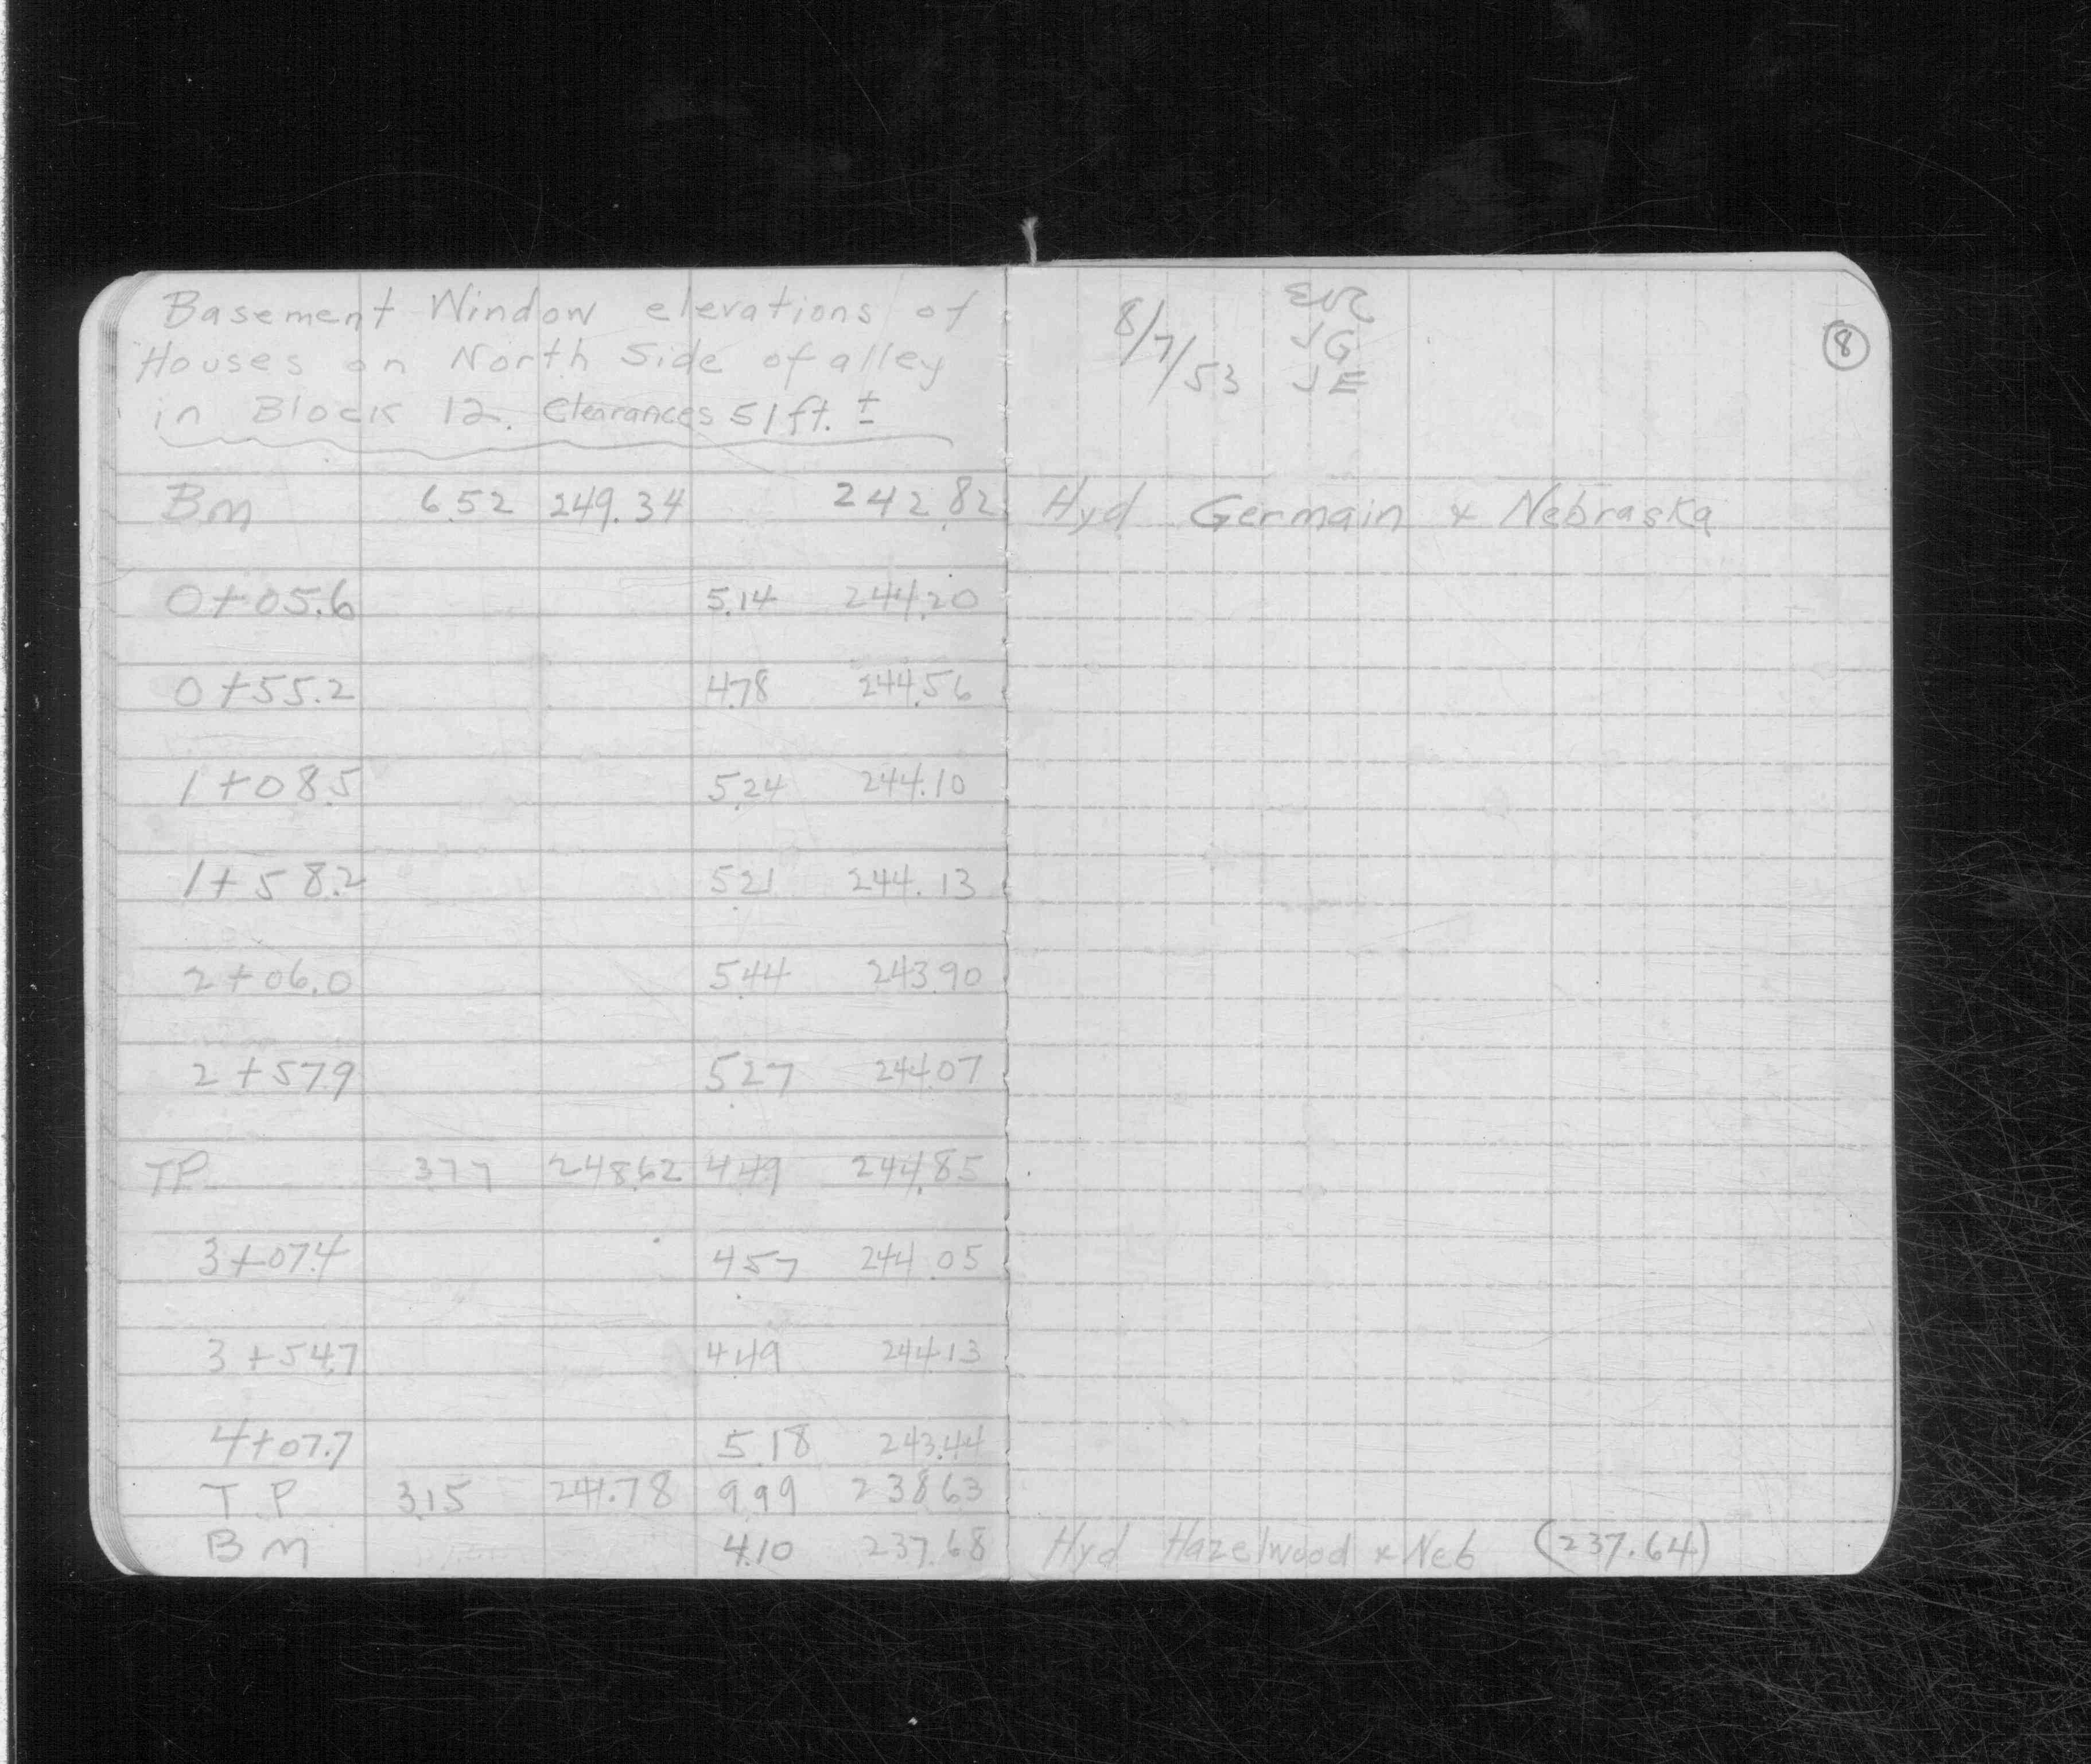 Basement Window elevations of
Houses on North Side of alley
in Block 12. Clearances 51 ft. ±
BM 6.52 249.34 242.82
0+05.6 5.14 244.20
0+55.2 4.78 244.56
1+08.5 5.24 244.10
1+58.2 5.21 244.13
2+06.0 5.44 243.90
2+57.9 5.27 244.07
TP 3.77 248.62 4.49 244.85
3+07.4 4.57 244.05
3+54.7 4.49 244.13
4+07.7 5.18 243.44
T.P 3.15 241.78 9.99 238.63
BM 4.10 237.68
8/7/53
JG
JE
8
Hyd Germain & Nebraska
Hyd Hazelwood & Neb (237.64)